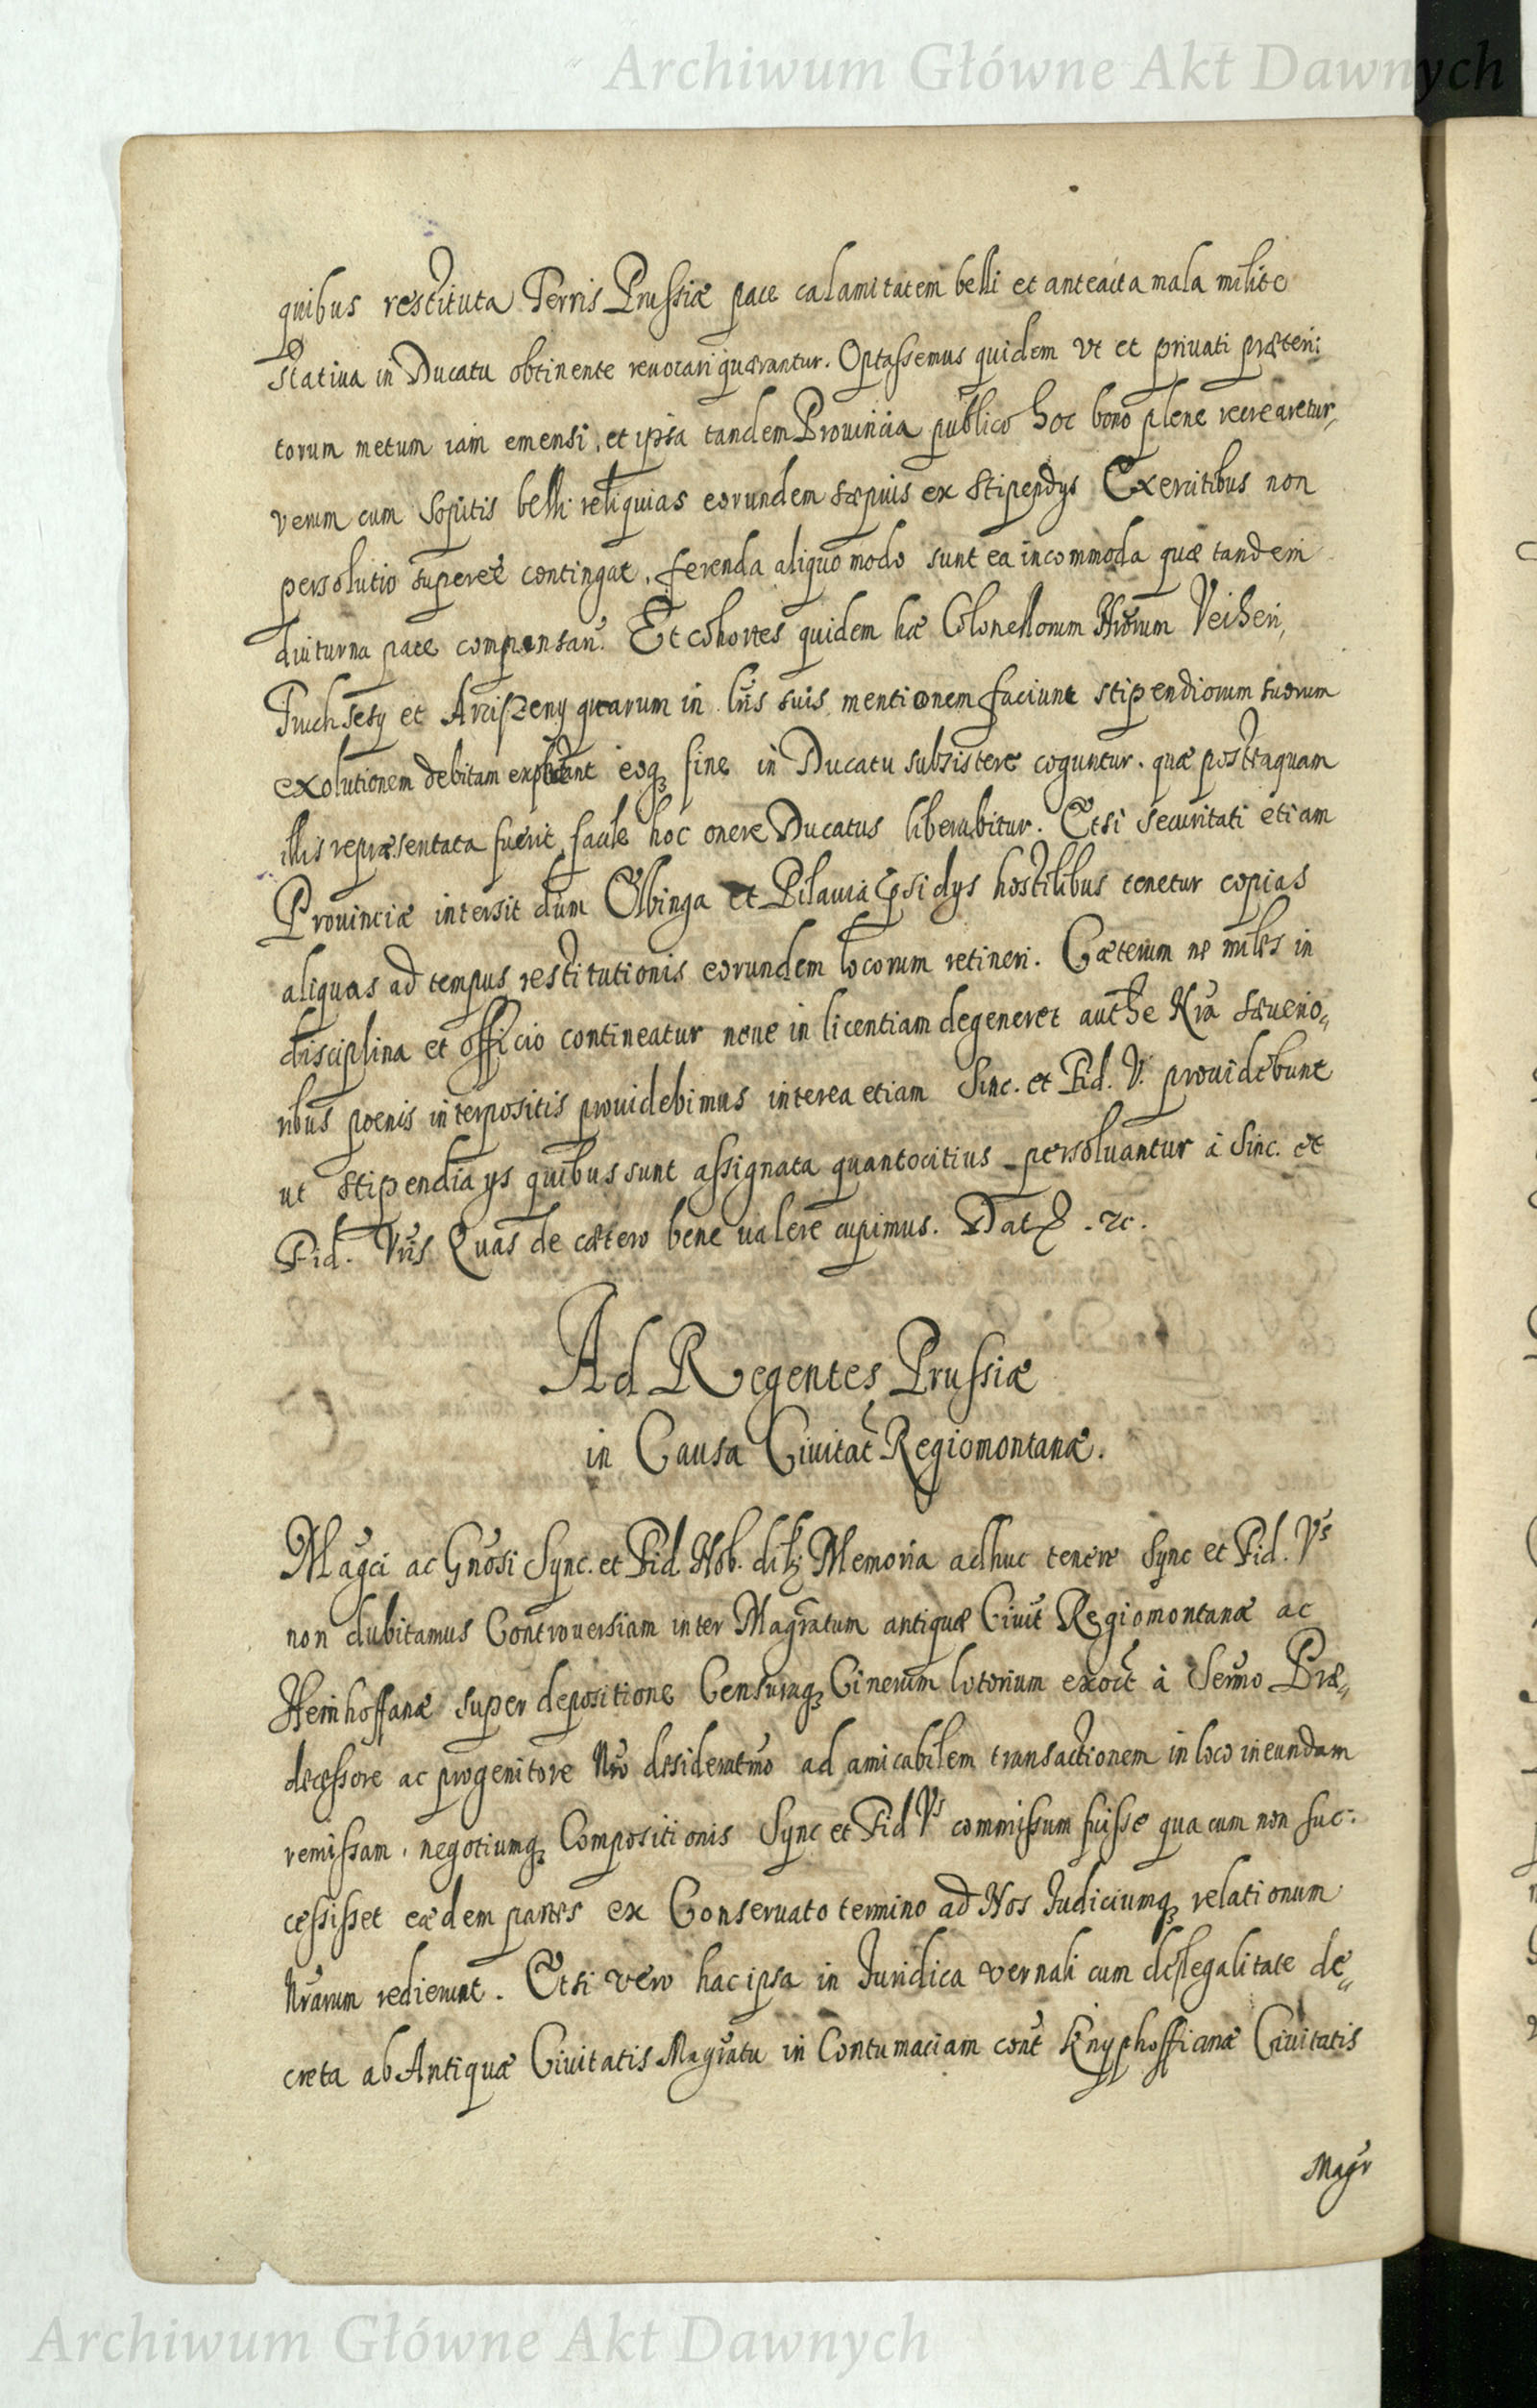 Archiwum Główne Akt Dawnych
quibus restituta Terris Prussiæ pace calamitatem belli et anteacta mala milite
Statiua in Ducatu obtinente reuocari quærantur. Optassemus quidem vt et priuati præteri:
torum metum iam emensi, et ipsa tandem Prouincia publico hoc bono plene recrearetur,
verum cum sopitis belli reliquias eorundem sæpius ex stipendys Exercitibus non
persolutio superee contingat, ferenda aliquo modo sunt ea incommoda quæ tandem
diuturna pace compensan. Et cohortes quidem hæ Colonellorum Nrorum Veiheri,
Truchsesy et Arciszeny quarum in lris suis mentionem faciunt stipendiorum suorum
exolutionem debitam eoq fine in Ducatu subsistere coguntur. quæ posteaquam
illis repræsentata fuerit, facile hoc onere Ducatus liberabitur. Etsi securitati etiam
Prouinciæ intersit dum Elbinga et Pilauia Psidys hostilibus tenetur copias
aliquas ad tempus restitutionis eorundem locorum retineri. Cæterum ne miles in
disciplina et officio contineatur neue in licentiam degeneret authe Nra seuerio„
ribus poenis interpositis prouidebimus interea etiam Sinc. et Fid. V. prouidebunt
ut stipendia ys quibus sunt assignata quantocitius persoluantur à Sinc. et
Fid. Vris Quas de cætero bene ualere cupimus. Dat .rc.
Ad Regentes Prussiæ
in Causa Ciuitat Regiomontanæ.
Magci ac Gnosi Sync. et Fid. Nob. dil Memoria adhuc tenere Sync et Fid. Vs
non dubitamus Controuersiam inter Magratum antiquæ Ciuit Regiomontanæ ac
Kneinhoffanæ super depositione Censuraq Cinerum lotorium exort à Sermo Præ„
decessore ac progenitore Nro desideratmo ad amicabilem transactionem in loco ineundam
remissam, negotiumq Compositionis Sync et Fid Vs commissum fuisse qua cum non suc:
cessisset eædem partes ex Conseruato termino ad Nos Iudiciumq relationum
Nrarum redierunt. Etsi vero hac ipsa in Iuridica vernali cum de legalitate de„
creta ab Antiquæ Ciuitatis Magratu in Contumaciam cont Knyphoffianæ Ciuitatis
Magr
Archiwum Główne Akt Dawnych